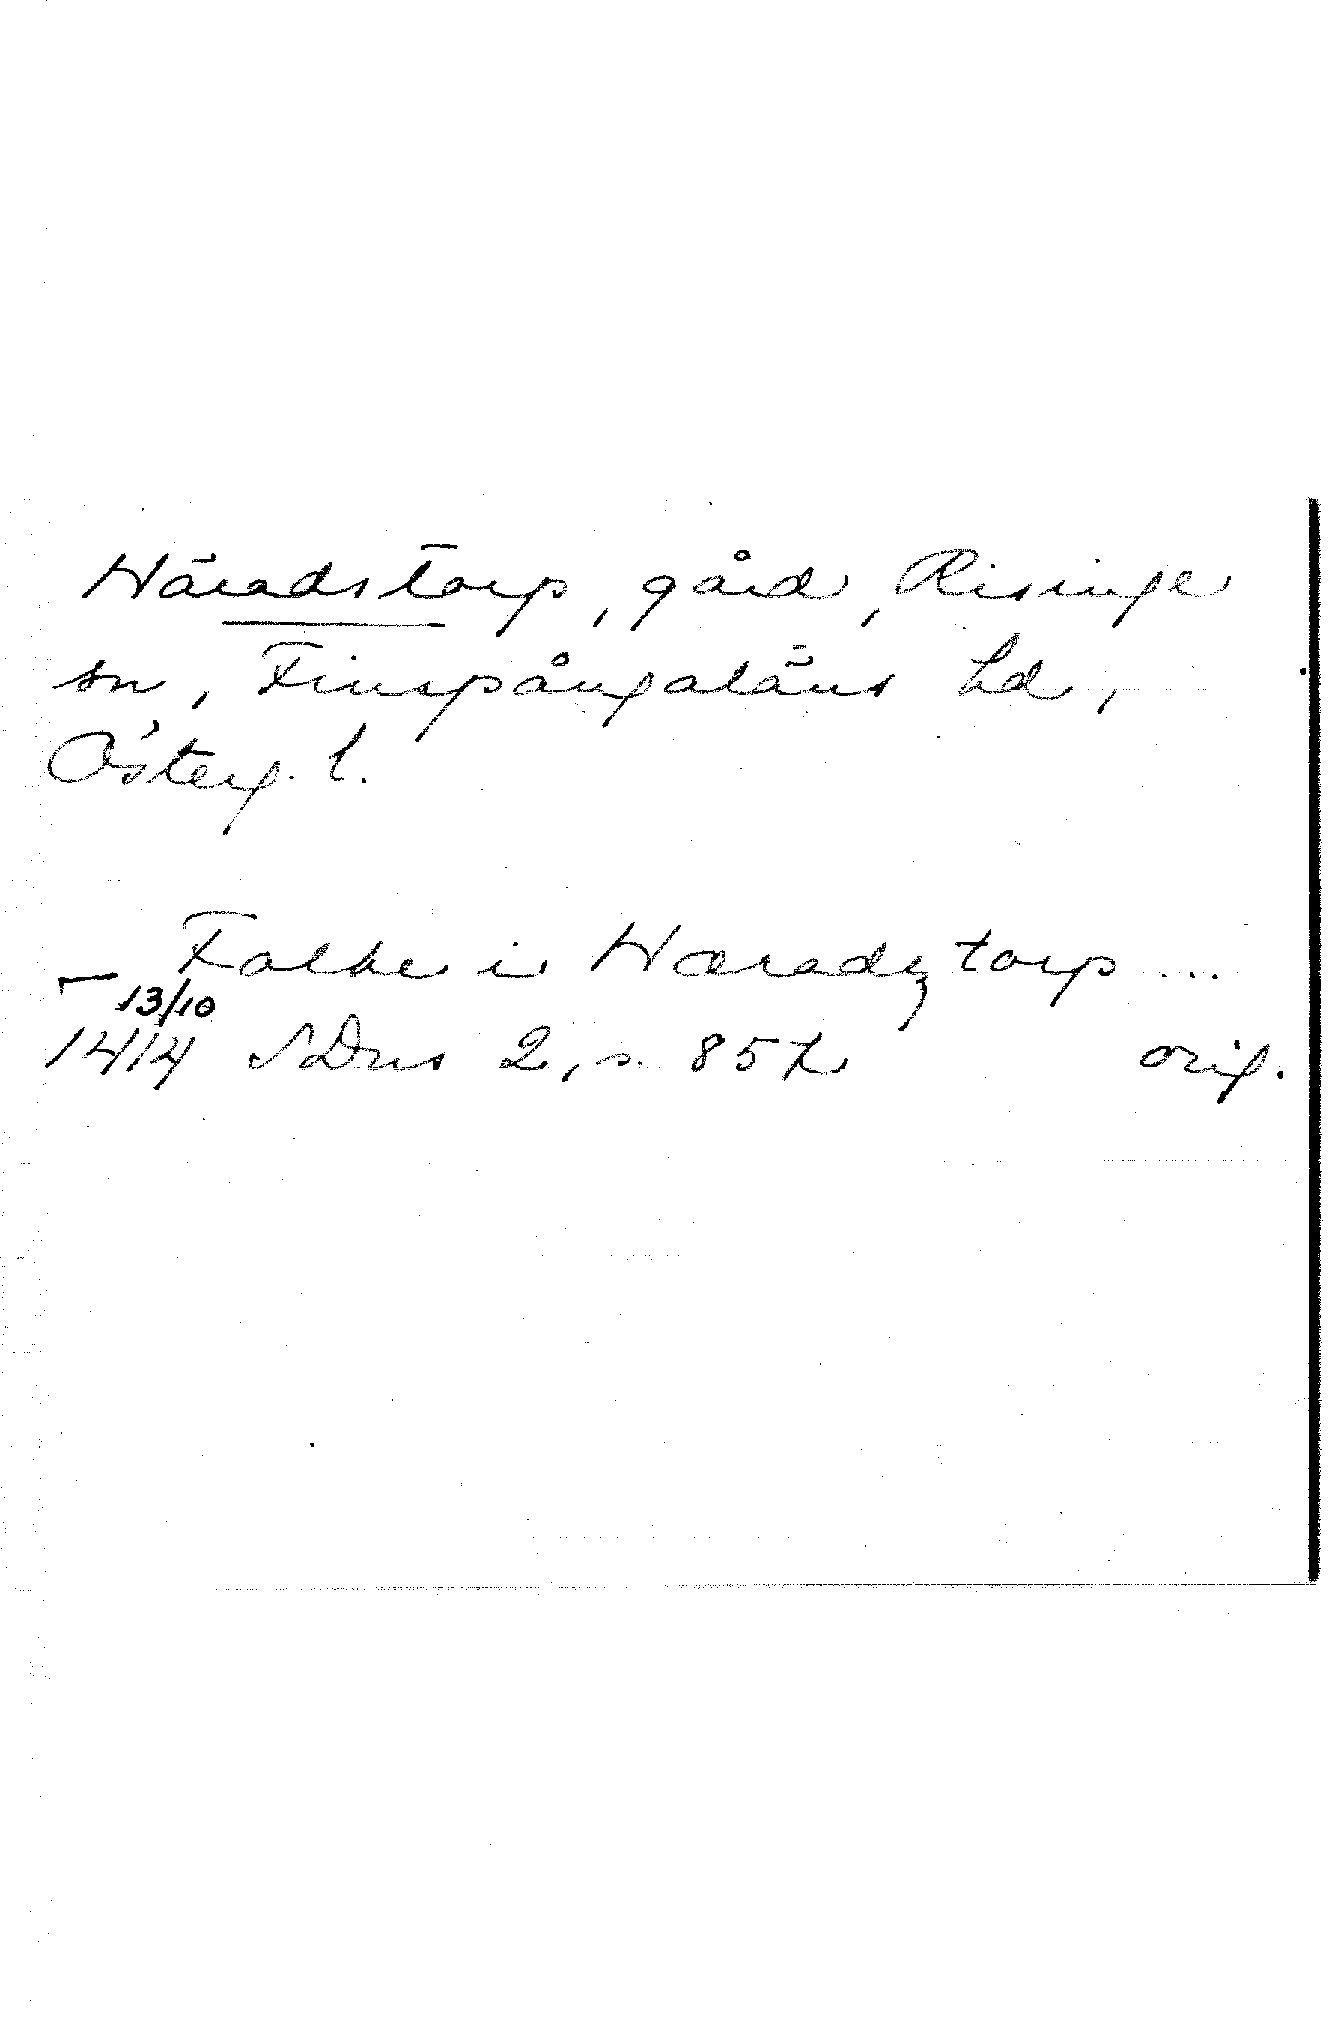 Häradstorp, gård, Risinge
sn, Finspångaläns hd,
Österg. l.
– Folke i Hæredztorp ...
13/10
1414 SDns 2, s. 857 orig.